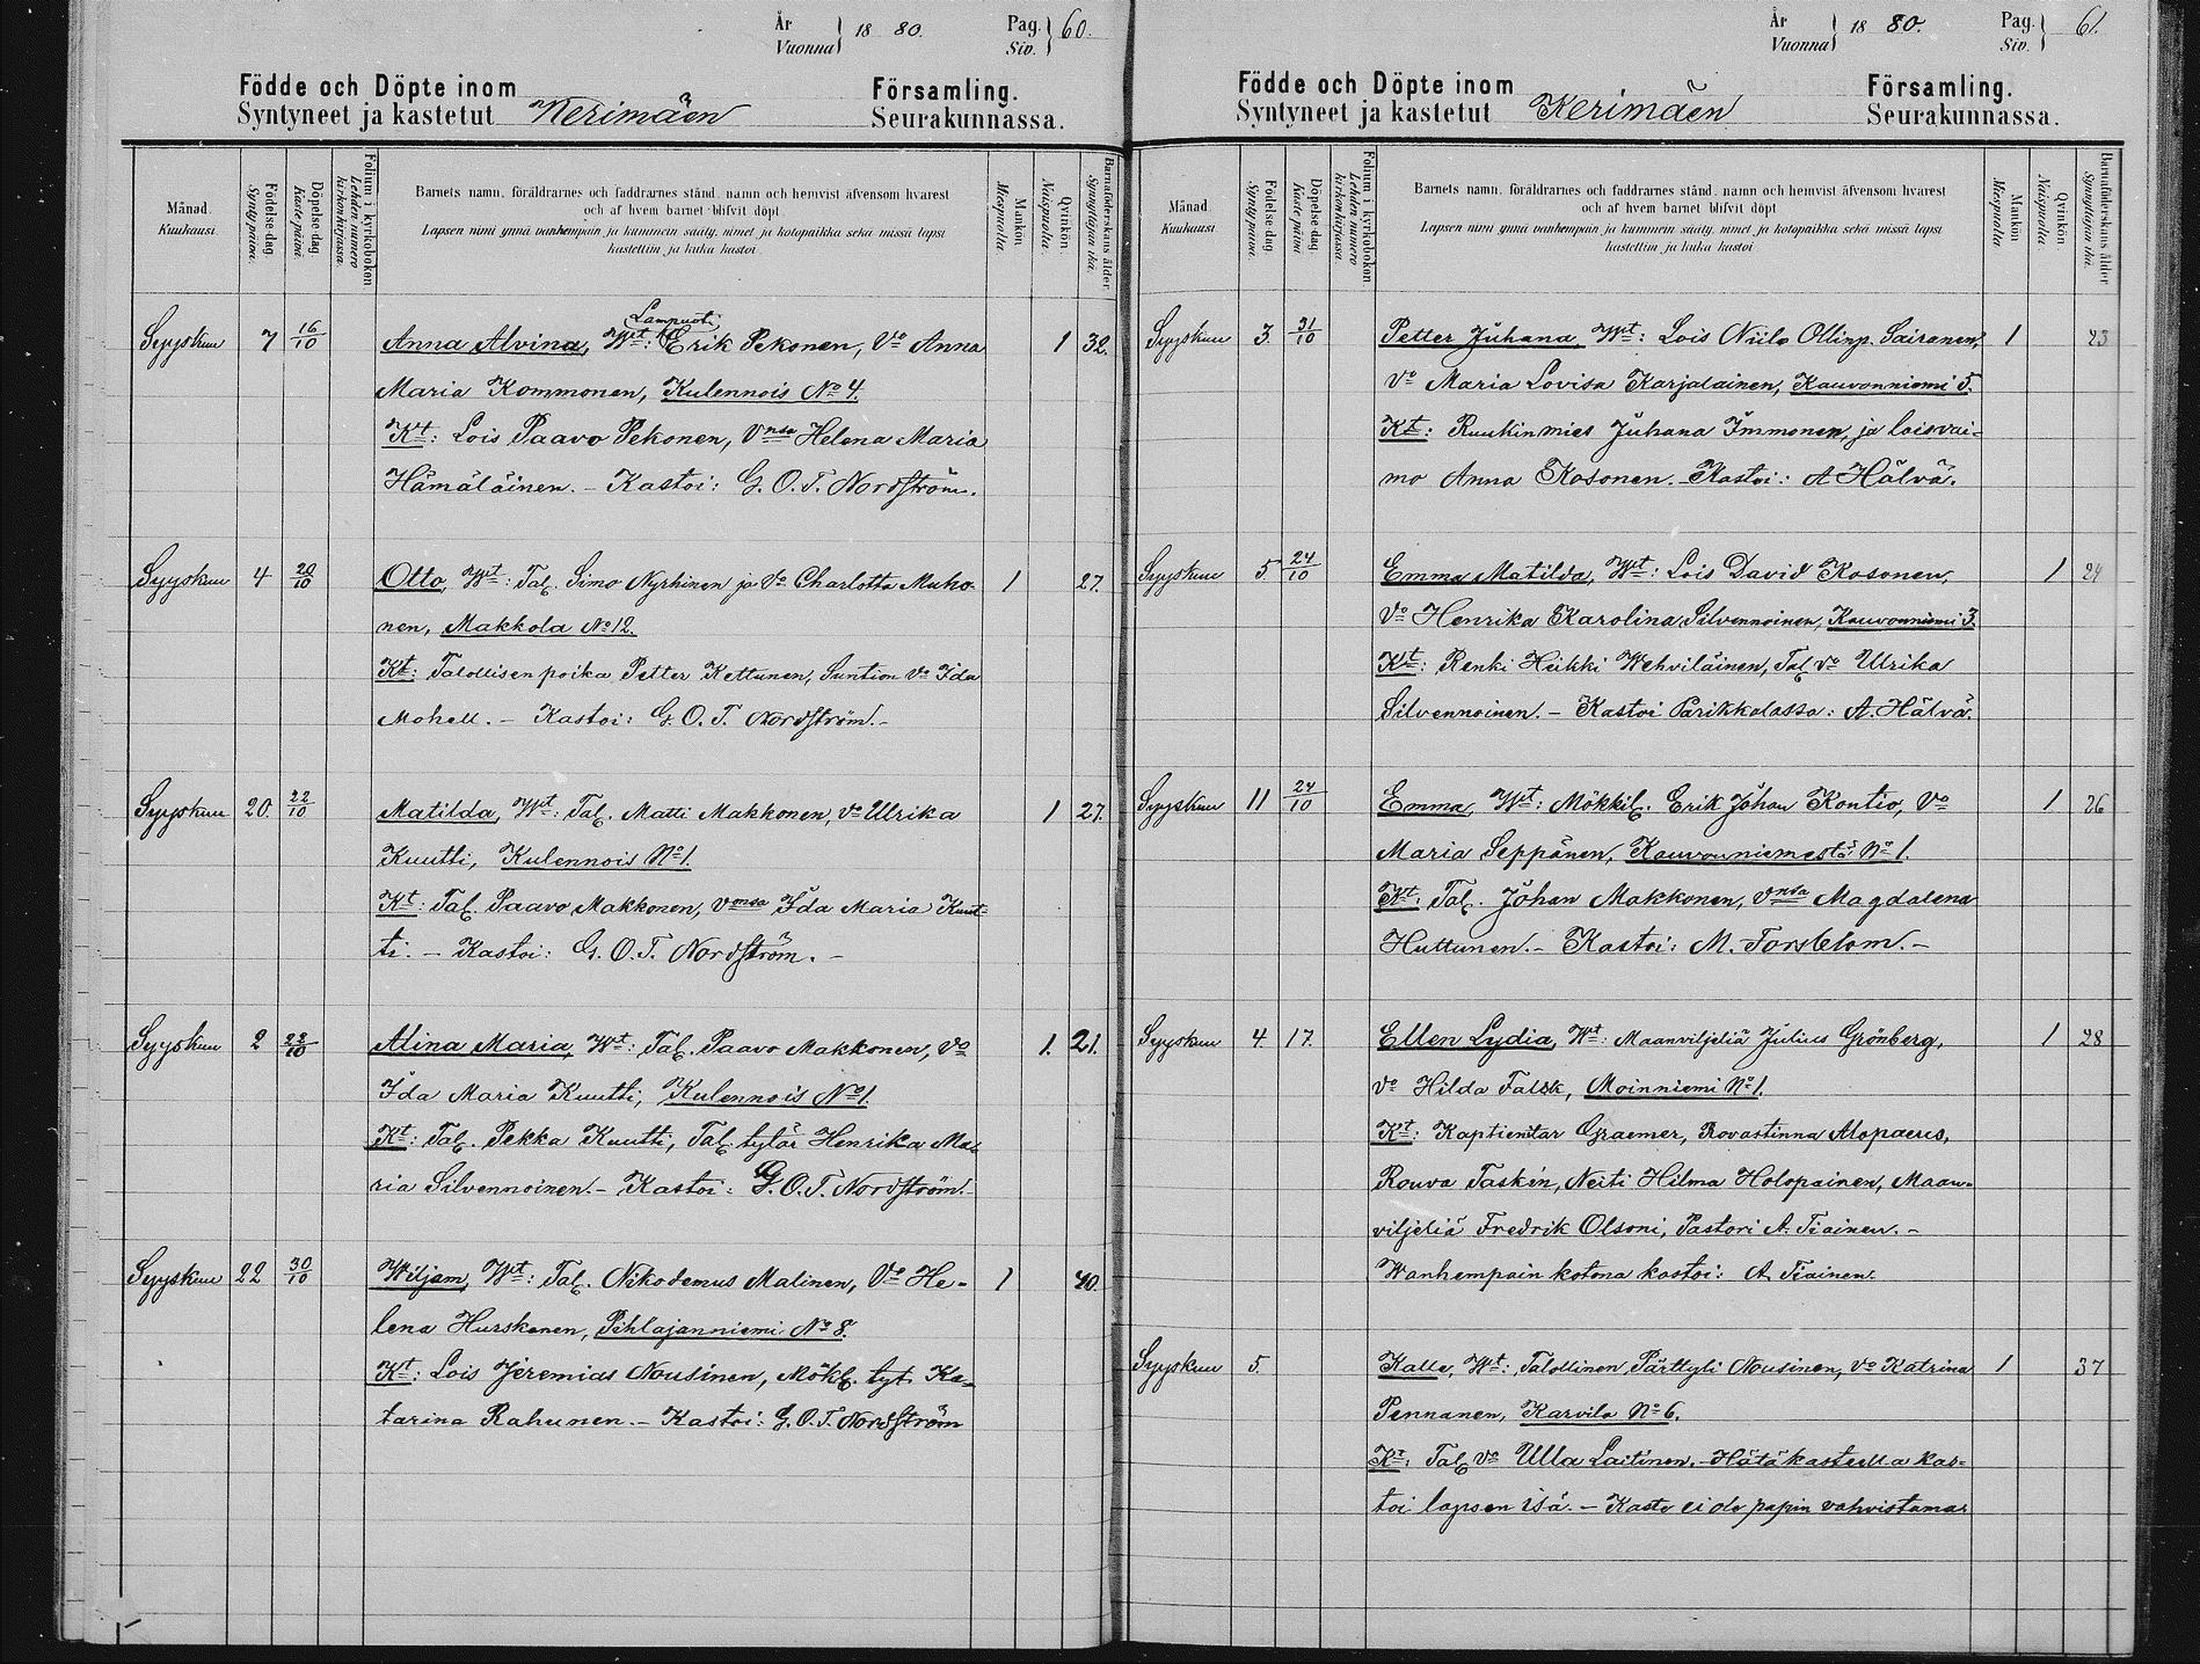 År
Vuonna } 18 80. Pag.
Siv. } 60.
Födde och Döpte inom Församling.
Syntyneet ja kastetut Kerimäen Seurakunnassa.
Månad.
Kuukausi.
Födelse-dag.
Syntypäivä.
Döpelse-dag.
Kastepäivä.
Folium i kyrkoboken
Lehden numero
kirkonkirjassa.
Barnets namn, föräldrarnes och faddrarnes stånd, namn och hemvist äfvensom hvarest
och af hvem barnet blifvit döpt.
Lapsen nimi ynnä vanhempain ja kummein sääty, nimet ja kotopaikka sekä missä lapsi
kastettiin ja kuka kastoi.
Mankön
Miespuolia.
Qvinkön.
Naispuolia.
Barnaföderskans ålder
Synnyttäjän ikä.
Lampuoti
Syyskuu 7 16/10 Anna Alvina, Wt: Erik Pekonen, Vo Anna 1 32.
Maria Kommonen, Kulennois No 4.
Kt: Lois Paavo Pekonen, Vnsa Helena Maria
Hämäläinen. – Kastoi: G. O. T. Nordström.
Syyskuu 4 20/10 Otto, Wt: Tal. Simo Nyrhinen ja Vo Charlotta Muho- 1 27.
nen, Makkola No 12.
Kt: Talollisen poika Petter Kettunen, Suntion Vo Ida
Mohell. – Kastoi: G. O. T. Nordström. –
Syyskuu 20. 22/10 Matilda, Wt: Tal. Matti Makkonen, Vo Ulrika 1 27.
Kuutti, Kulennois No 1.
Kt: Tal. Paavo Makkonen, Vonsa Ida Maria Kuut-
ti. – Kastoi: G. O. T. Nordström. –
Syyskuu 2 22/10 Alina Maria, Wt: Tal. Paavo Makkonen, Vo 1. 21.
Ida Maria Kuutti, Kulennois No 1.
Kt: Tal. Pekka Kuutti, Tal. tytär Henrika Ma-
ria Silvennoinen. – Kastoi: G. O. T. Nordström. –
Syyskuu 22 30/10 Wiljam, Wt: Tal. Nikodemus Malinen, Vo He- 1 40.
lena Hurskanen, Pihlajanniemi No 8.
Kt: Lois Jeremias Nousinen, Mökl. tyt. Ka-
tarina Rahunen. – Kastoi: G. O. T. Nordström
År
Vuonna } 18 80. Pag.
Siv. } 61.
Födde och Döpte inom Församling.
Syntyneet ja kastetut Kerimäen Seurakunnassa.
Månad.
Kuukausi.
Födelse-dag.
Syntypäivä.
Döpelse-dag.
Kastepäivä.
Folium i kyrkoboken
Lehden numero
kirkonkirjassa.
Barnets namn, föräldrarnes och faddrarnes stånd, namn och hemvist äfvensom hvarest
och af hvem barnet blifvit döpt
Lapsen nimi ynnä vanhempain ja kummein sääty, nimet ja kotopaikka sekä missä lapsi
kastettiin ja kuka kastoi.
Mankön
Miespuolia.
Qvinkön
Naispuolia.
Barnaföderskans ålder
Synnyttäjän ikä.
Syyskuu 3. 31/10 Petter Juhana, Wt: Lois Niilo Ollinp. Sairanen, 1 23
Vo Maria Lovisa Karjalainen, Kauvonniemi 5.
Kt: Ruukinmies Juhana Immonen, ja loisvai-
mo Anna Kosonen. – Kastoi: A Hälvä.
Syyskuu 5. 24/10 Emma Matilda, Wt: Lois David Kosonen, 1 24
Vo Henrika Karolina Silvennoinen, Kauvonniemi 3.
Kt: Renki Heikki Wehviläinen, Tal. Vo Ulrika
Silvennoinen. – Kastoi Parikkalassa: A. Hälvä.
Syyskuu 11 24/10 Emma, Wt: Mökkil. Erik Johan Kontio, Vo 1 26
Maria Seppänen, Kauvonniemestä No 1.
Kt: Tal. Johan Makkonen, Vnsa Magdalena
Huttunen. – Kastoi: M. Forsblom. –
Syyskuu 4. 17. Ellen Lydia, Wt: Maanviljeliä Julius Grönberg, 1 28
Vo Hilda Falck, Moinniemi No 1.
Kt: Kaptientar Graemer, Rovastinna Alopaeus,
Rouva Taskin, Neiti Hilma Holopainen, Maan-
viljeliä Fredrik Olsoni, Pastori A. Tiainen. –
Wanhempain kotona kastoi: A. Tiainen.
Syyskuu 5. Kalle, Wt: Talollinen Pärttyli Nousinen, Vo Katrina 1 37
Pennanen, Karvila No 6.
Kt: Tal. Vo Ulla Laitinen. – Hätäkasteella kas-
toi lapsen isä. – Kaste ei ole papin vahvistama